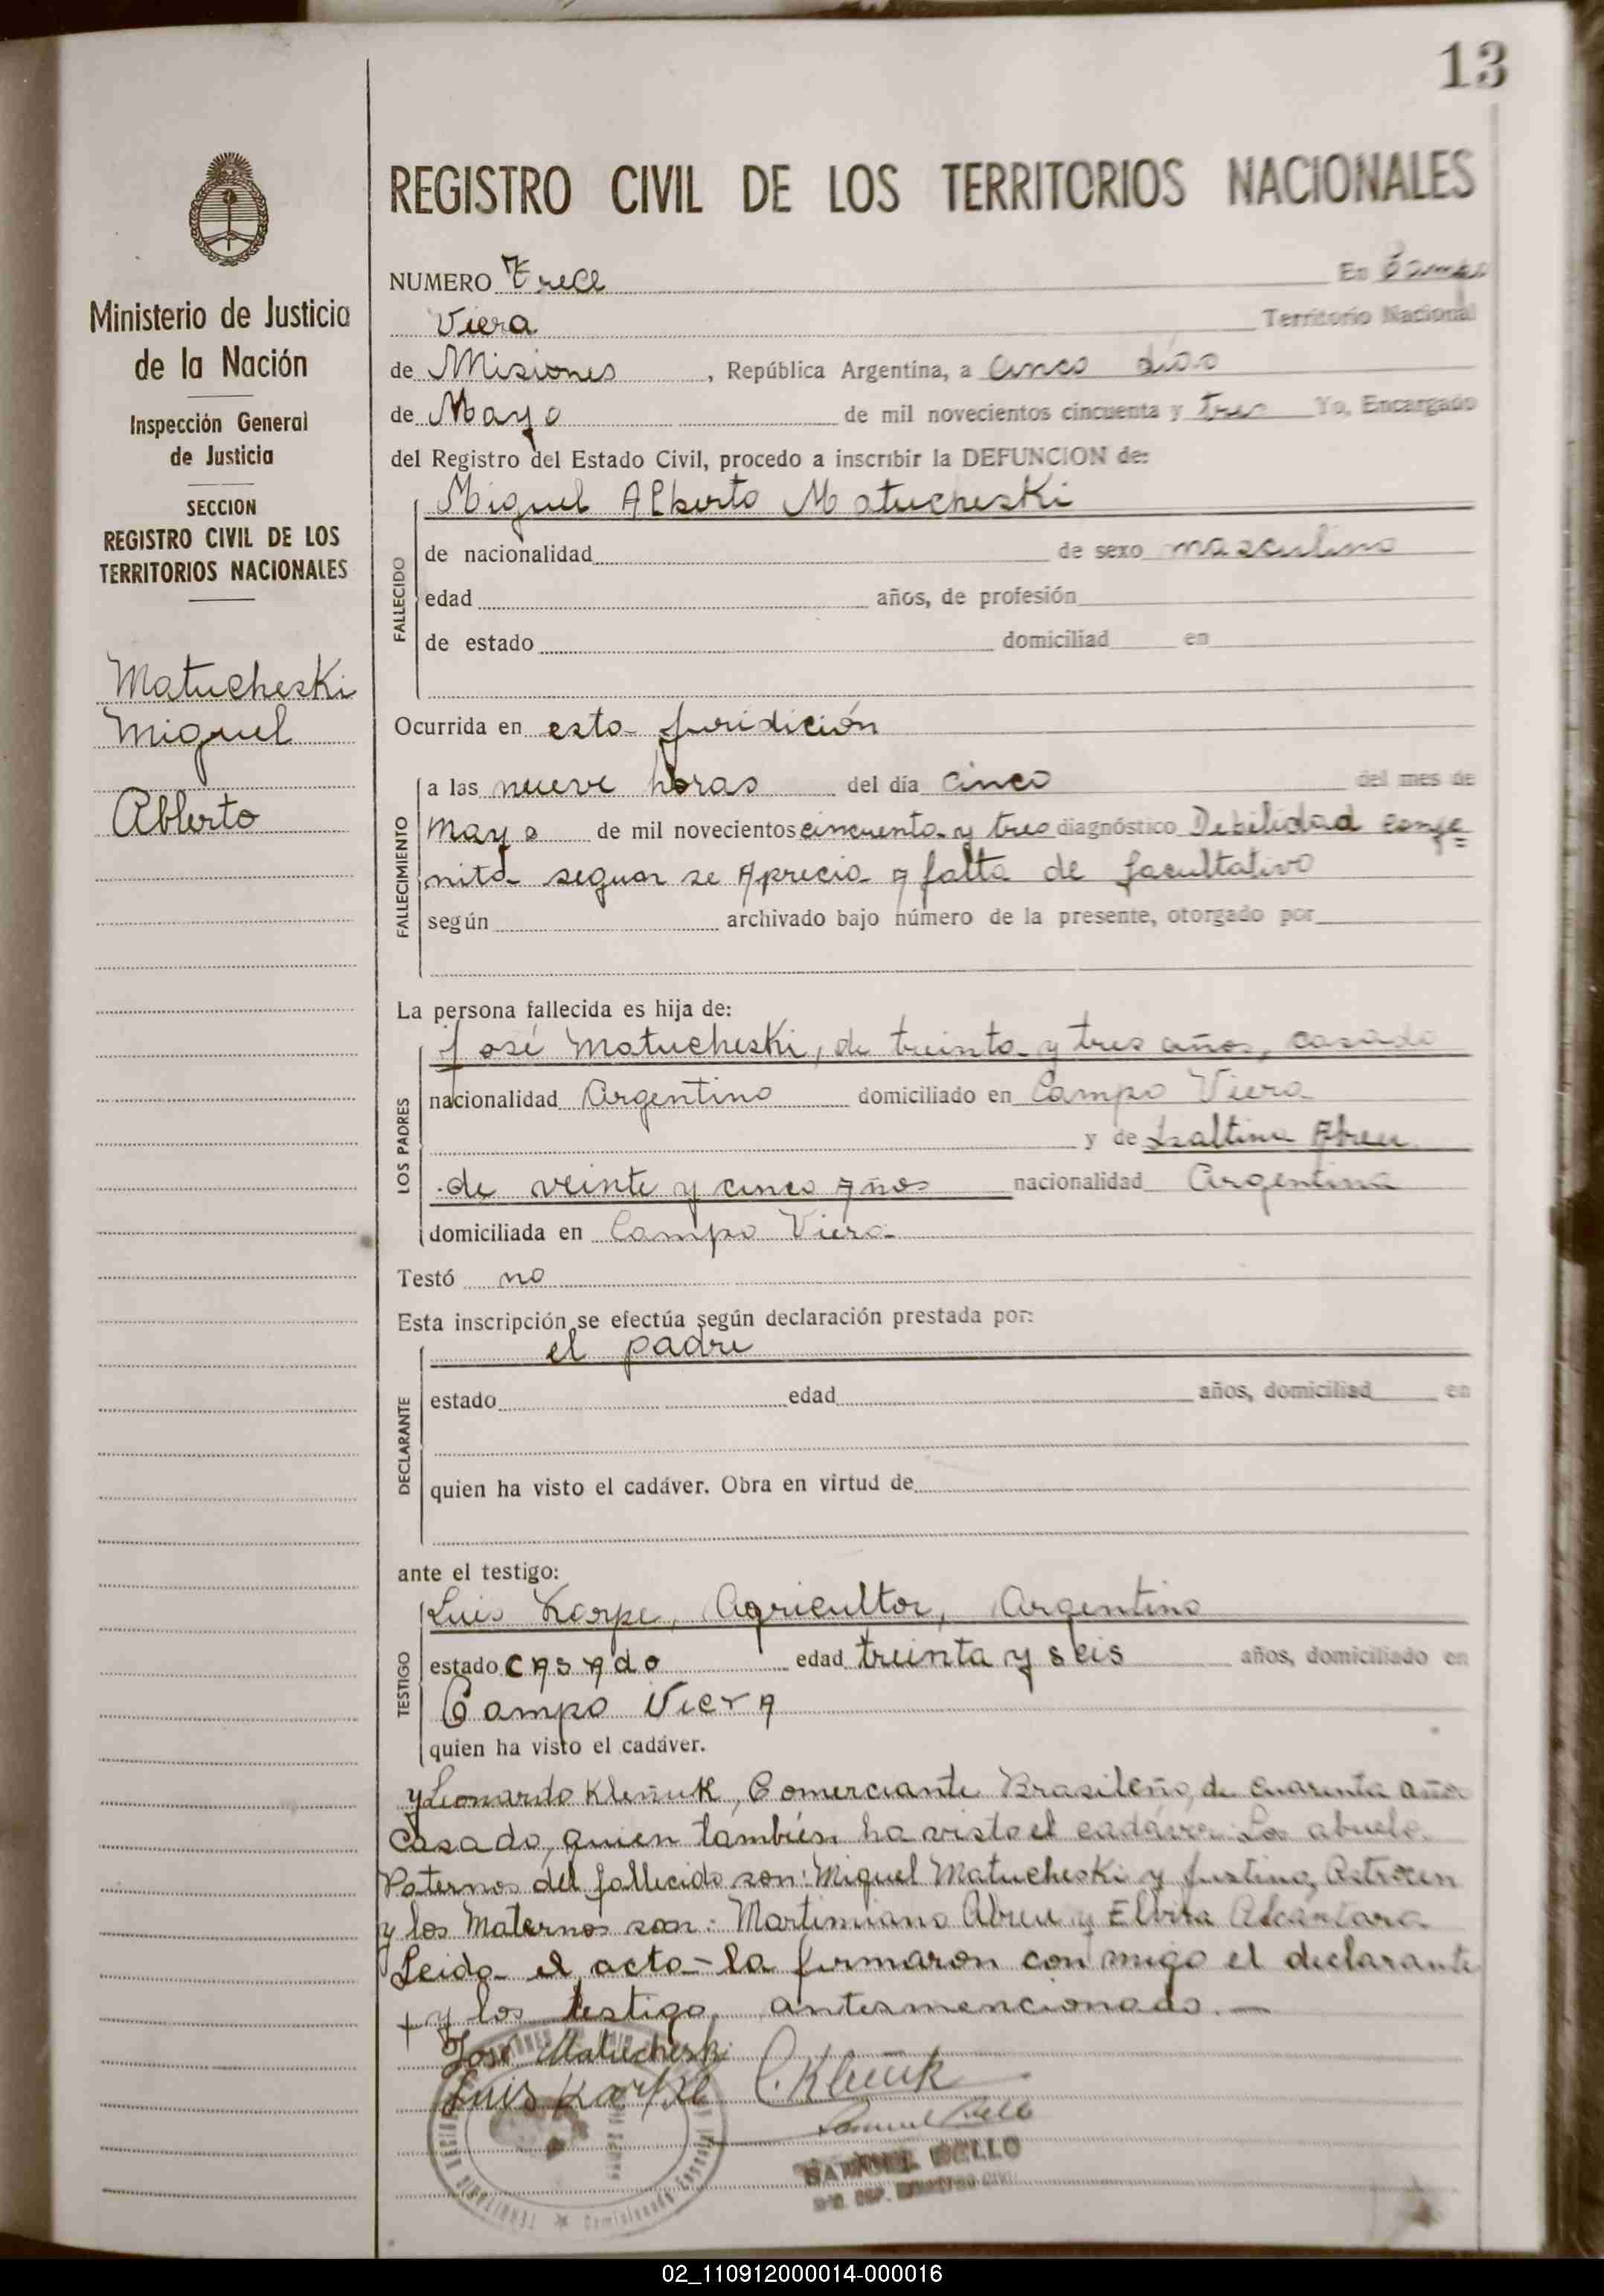 13
REGISTRO CIVIL DE LOS TERRITORIOS NACIONALES
Ministerio de Justicia
de la Nación
Inspección General
de Justicia
SECCION
REGISTRO CIVIL DE LOS
TERRITORIOS NACIONALES
Matucheski
Miguel
Alberto
NUMERO Trece En Campo
Viera Territorio Nacional
de Misiones, República Argentina, a cinco dias
de Mayo de mil novecientos cincuenta y tres Yo, Encargado
del Registro del Estado Civil, procedo a inscribir la DEFUNCION de:
Miguel Alberto Matucheski
FALLECIDO
de nacionalidad de sexo masculino
edad años, de profesión
de estado domiciliad en
Ocurrida en esta juridición
FALLECIMIENTO
a las nueve horas del día cinco del mes de
mayo de mil novecientos cincuenta y tres diagnóstico Debilidad conge=
nita segun se Aprecia a falta de facultativo
según archivado bajo número de la presente, otorgado por
La persona fallecida es hija de:
LOS PADRES
José Matucheski, de treinta y tres años, casado
nacionalidad Argentino domiciliado en Campo Viera
y de Isaltina Abreu
de veinte y cinco Años nacionalidad Argentina
domiciliada en Campo Viera
Testó no
Esta inscripción se efectúa según declaración prestada por:
DECLARANTE
el padre
estado edad años, domiciliad en
quien ha visto el cadáver. Obra en virtud de
ante el testigo:
TESTIGO
Luis Karpe, Agricultor, Argentino
estado casado edad treinta y seis años, domiciliado en
Campo Viera
quien ha visto el cadáver.
y Leonardo Kleñuk, Comerciante Brasileño, de cuarenta años
Casado, quien también ha visto el cadáver. Los abuelo.
Paternos del fallecido son: Miguel Matucheski y Justina,
y los Maternos son: Martimiano Abreu y Elvira Alcántara
Leida el acta - la firmaron con migo el declarante
+ y los testigo, antesmencionado. —
José Matucheski
Luis Karpe L. Kleñuk
SAMUEL BELLO
02_110912000014-000016